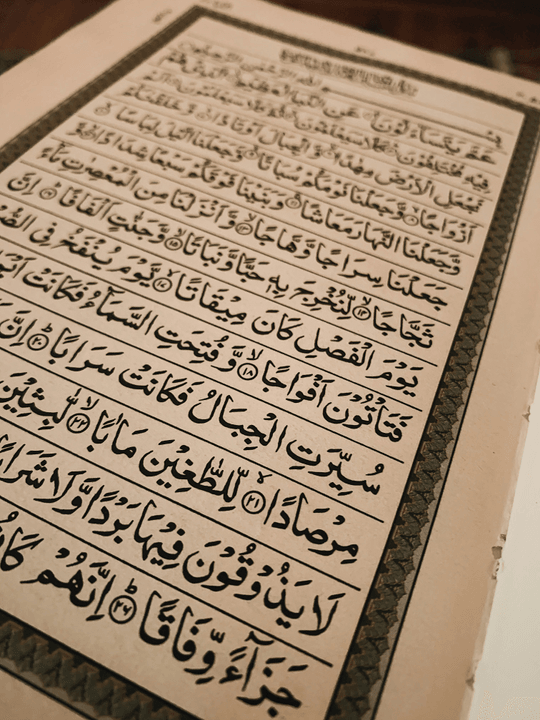 بِسْمِ اللهِ الرَّحْمٰنِ الرَّحِيْمِ
عَمَّ يَتَسَآءَلُوْنَ عَنِ النَّبَاِ الْعَظِيْمِ الَّذِيْ هُمْ
فِيْهِ مُخْتَلِفُوْنَ كَلَّا سَيَعْلَمُوْنَ ثُمَّ كَلَّا سَيَعْلَمُوْنَ اَلَمْ
نَجْعَلِ الْاَرْضَ مِهٰدًا وَّالْجِبَالَ اَوْتَادًا وَّخَلَقْنٰكُمْ
اَزْوَاجًا وَّجَعَلْنَا نَوْمَكُمْ سُبَاتًا وَّجَعَلْنَا الَّيْلَ لِبَاسًا
وَّجَعَلْنَا النَّهَارَ مَعَاشًا وَّبَنَيْنَا فَوْقَكُمْ سَبْعًا شِدَادًا وَّ
جَعَلْنَا سِرَاجًا وَّهَّاجًا ۙ١٣ وَّاَنْزَلْنَا مِنَ الْمُعْصِرٰتِ مَآءً
ثَجَّاجًا ۙ١٤ لِّنُخْرِجَ بِهٖ حَبًّا وَّنَبَاتًا ۙ١٥ وَّجَنّٰتٍ اَلْفَافًا ؕ١٦ اِنَّ
يَوْمَ الْفَصْلِ كَانَ مِيْقَاتًا ۙ١٧ يَّوْمَ يُنْفَخُ فِى
فَتَاْتُوْنَ اَفْوَاجًا ۙ١٨ وَّفُتِحَتِ السَّمَآءُ فَكَانَتْ
سُيِّرَتِ الْجِبَالُ فَكَانَتْ سَرَابًا ؕ٢٠ اِنَّ
مِرْصَادًا ۙ٢١ لِّلطّٰغِيْنَ مَاٰبًا ۙ٢٢ لّٰبِثِيْنَ
لَا يَذُوْقُوْنَ فِيْهَا بَرْدًا وَّلَا
جَزَآءً وِّفَاقًا ؕ٢٦ اِنَّهُمْ